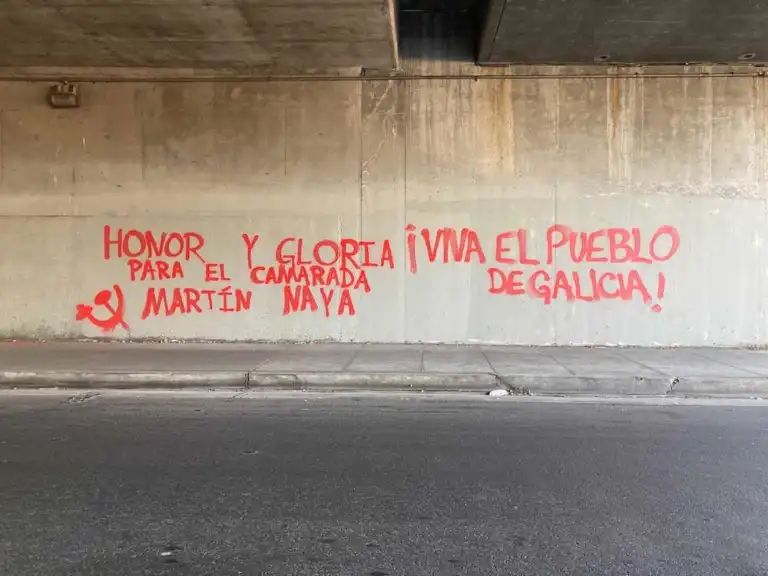 HONOR Y GLORIA
PARA EL CAMARADA
MARTÍN NAYA
¡VIVA EL PUEBLO
DE GALICIA!